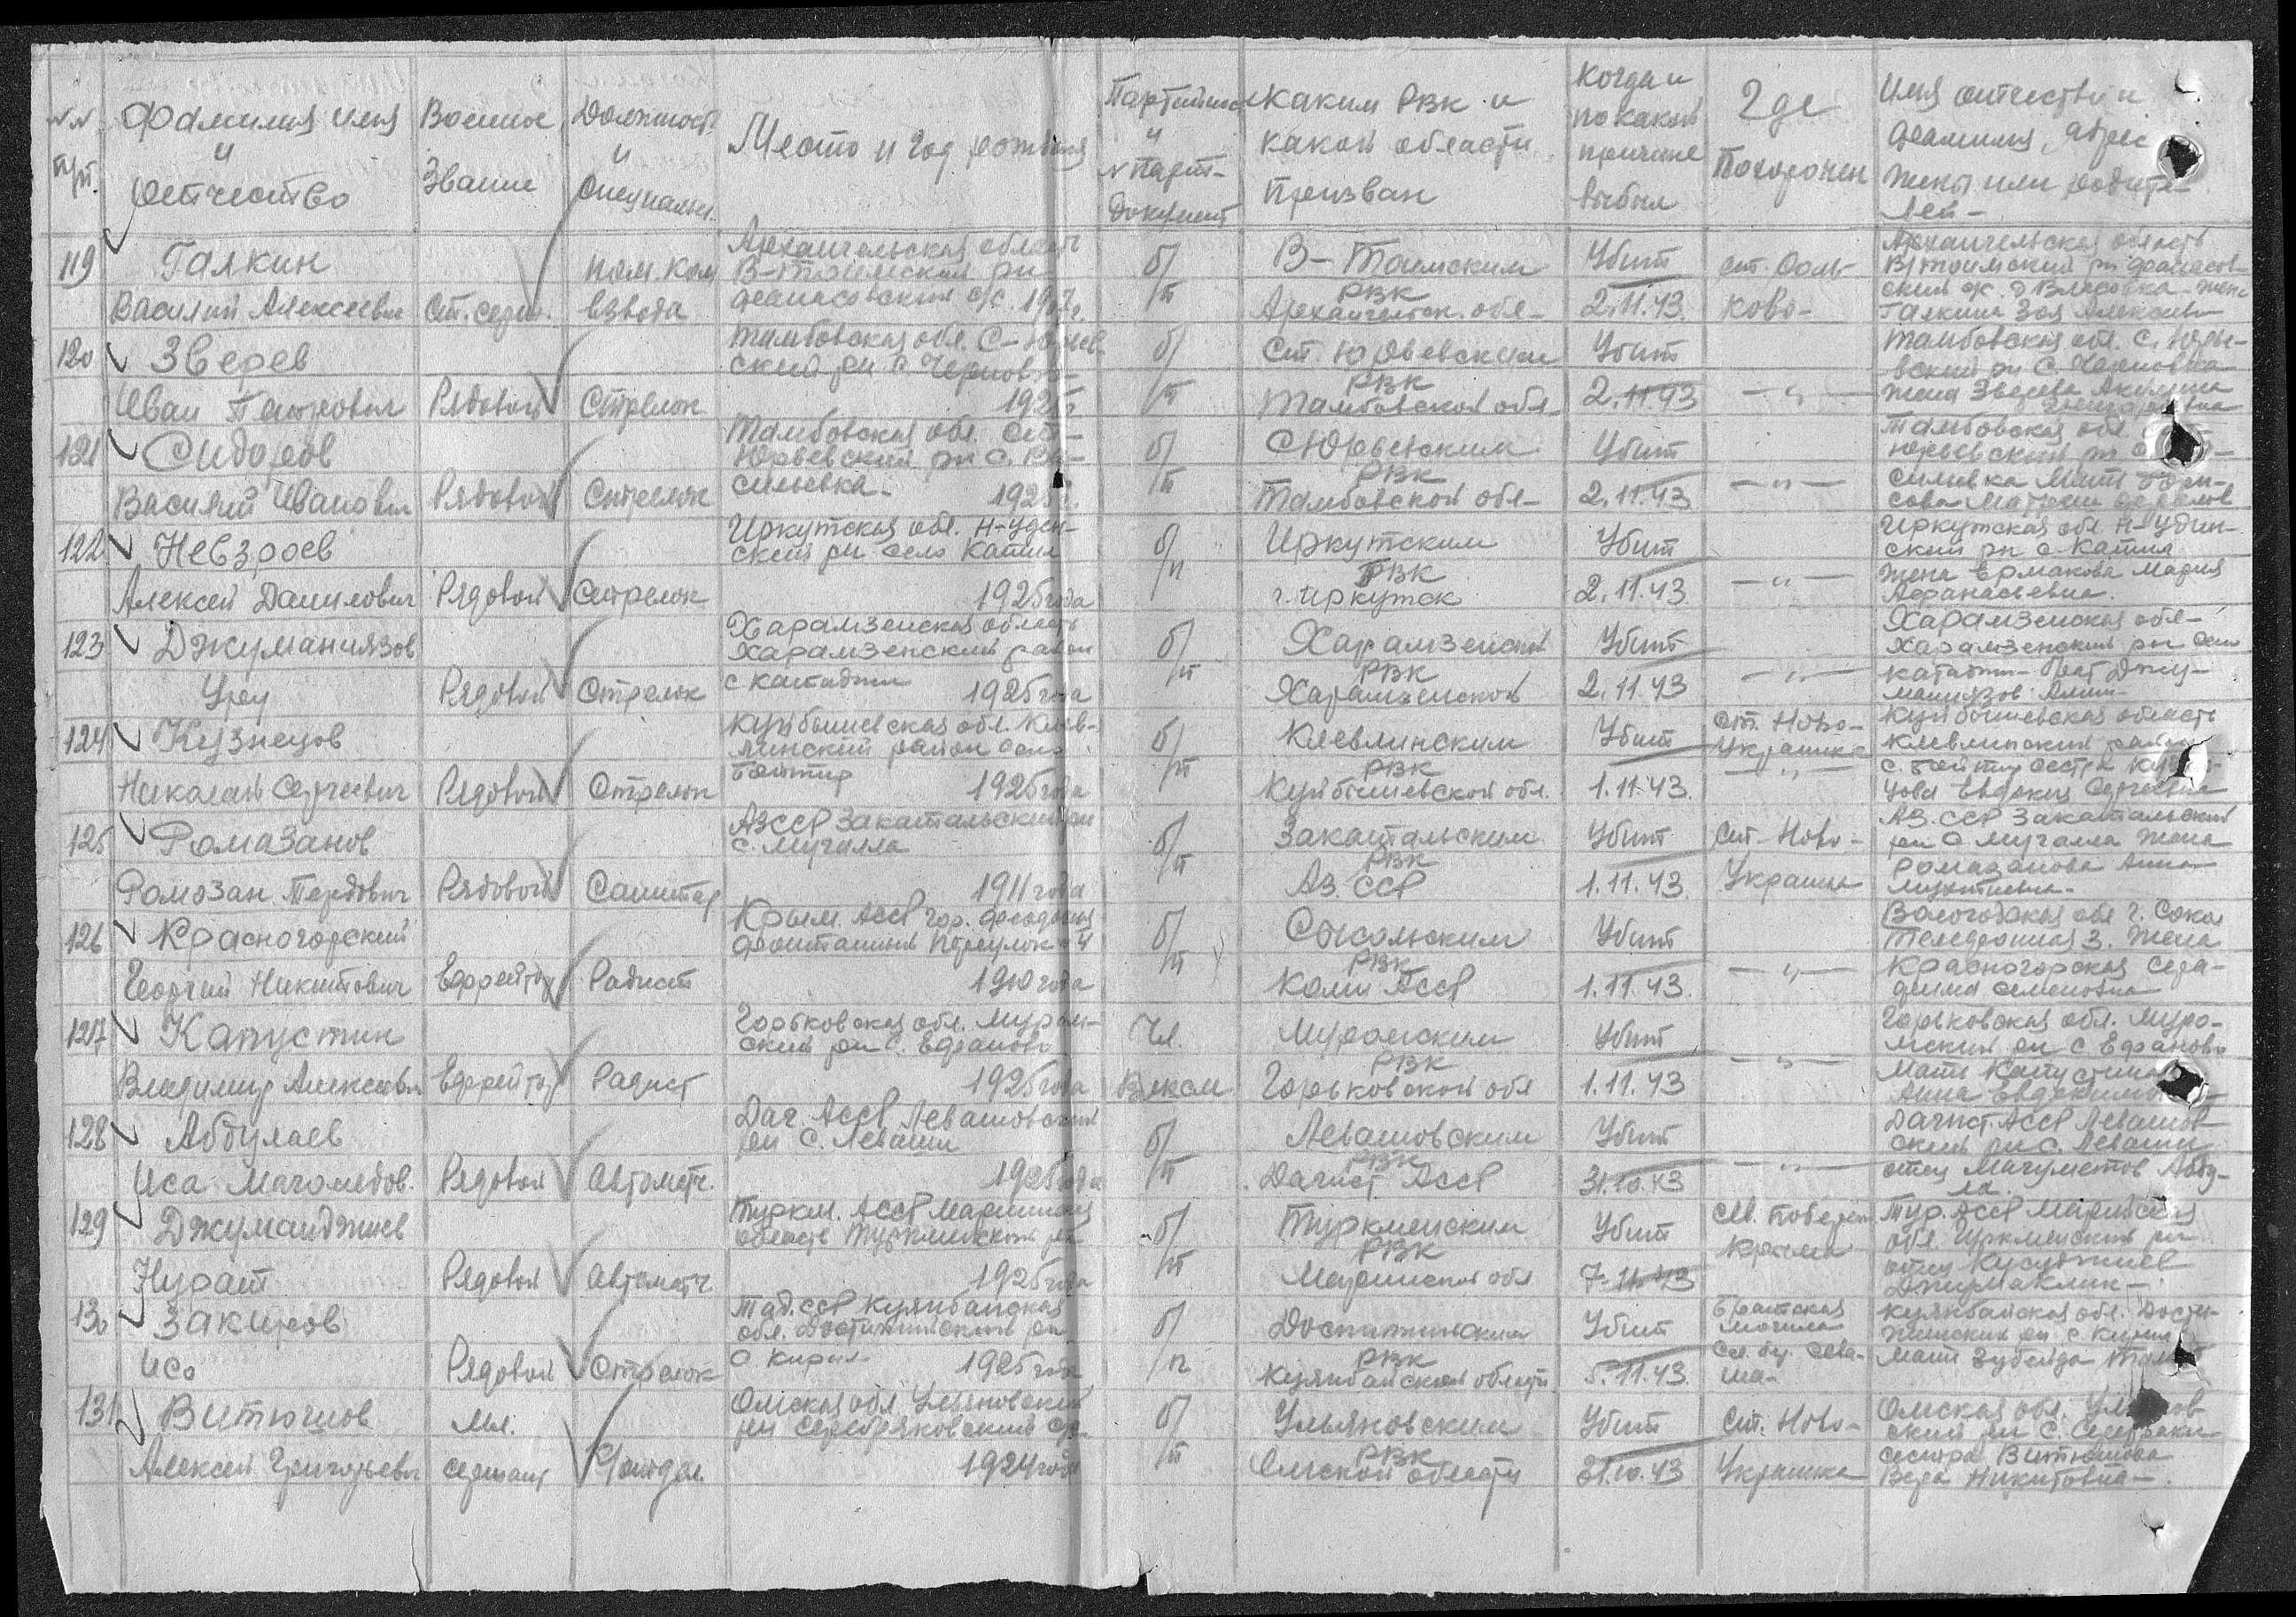 №№ п/п.
Фамилия имя и отчество
Военное Звание
Должност. и специальн.
Место и год рождения
Партийност и № Парт-документ
Каким РВК и какой области призван
Когда и по какой причине выбыл
Где Похоронен
Имя отчество и фамилия, адрес жены или родите-лей-
119
Галкин
Василий Алексеевич
Ст. серж.
пом. ком взвода
Архангельская область
В-Тоимский рн
с/с. 1907г.
б/п
В-Тоимским
РВК
Архангельск. обл-
Убит
2.11.43.
ст. Сось-
ково-
Архангельская область
В/тоимский рн
жена
Галкина Зоя Алексеев
120
Зверев
Иван Петрович
Рядовой
Стрелок
Тамбовская обл. С-Юрьев-
ский рн с. Черновка-
1925г
б/п
Ст. Юрьевским
РВК
Тамбовской обл-
Убит
2.11.43
— " —
Тамбовская обл. С. Юрье-
вский рн С. Черновка
жена Зверева Акулина
121
Сидоров
Василий Иванович
Рядовой
Стрелок
Тамбовская обл. Ст-
Юрьевский рн с. Ва-
сильевка- 1925г.
б/п
С Юрьевским
РВК
Тамбовской обл-
Убит
2.11.43
— " —
Тамбовская обл.
Юрьевский рн с.
сильевка Мать
122
Невзроев
Алексей Данилович
Рядовой
Стрелок
Иркутская обл. Н-Удин-
ский рн село Катин
1925 года
б/п
Иркутским
РВК
г. Иркутск
Убит
2.11.43
— " —
Иркутская обл. Н-Удин-
ский рн с. Катин
жена Ермакова Мария
Афанасьевна.
123
Джуманиязов
Уреу
Рядовой
Стрелок
Харамзенская область
Харамзенский район
с катаджи 1925 года
б/п
Харамзенский
РВК
Харамзенской
Убит
2.11.43
— " —
Харамзенская обл-
Харамзенский рн село
катаджи- Джу-
маниязов
124
Кузнецов
Николай Сергеевич
Рядовой
Стрелок
Куйбышевская обл. Кляв-
линский район село
1925 года
б/п
Клевлинским
РВК
Куйбышевской обл.
Убит
1.11.43.
ст. Ново-
Украинка
— " —
Куйбышевская область
Клевлинский район
сестра Кузне-
цова Евдокия Сергеевна
125
Ромазанов
Ромозан
Рядовой
Санитар
АЗССР Закатальский рн
с. Мугалла
1911 года
б/п
Закатальским
РВК
Аз. ССР
Убит
1.11.43.
ст. Ново-
Украинка
АЗ.ССР Закатальский
рн с Мугалла жена
Ромазанова Анна
126
Красногорский
Георгий Никитович
Ефрейтор
Радист
Крым. АССР гор. Феодосия
Фонтанный Переулок 4
1910 года
б/п
Сокольским
РВК
Коми АССР
Убит
1.11.43.
— " —
Вологодская обл г. Сокол
Телефонная 3. Жена
Красногорская Сера-
фима Семеновна
127
Капустин
Владимир Алексеевич
Ефрейтор
Радист
Горьковская обл. Муром-
ский рн с. Ефаново
1925 года
Чл.
Влксм
Муромским
РВК
Горьковской обл
Убит
1.11.43
— " —
Горьковская обл. Муро-
мский рн с Ефаново
Мать Капустина
Анна Евдокимовна
128
Абдулаев
Иса Магомедов.
Рядовой
Автоматч.
Даг АССР Левашовский
рн с. Леваши
1925 года
б/п
Левашовским
РВК
Дагист АССР
Убит
31.10.43
— " —
Дагист. АССР Левашов-
ский рн с. Леваши
отец Магуметов Абду-
ла.
129
Джуманджиев
Нурат
Рядовой
Автоматч.
Туркм. АССР Марийская
область Туркменский рн
1925 года
б/п
Туркменским
РВК
Марийской обл
Убит
7.11.43
Сев. Побереж
Крыма
Тур. АССР Марийская
обл. Туркменский рн
отец Кусуджиев
130
Закиров
Исо
Рядовой
Стрелок
Тад.ССР Кулябайская
обл. рн
с Кирил- 1925 года
б/п
РВК
Кулябайская область
Убит
5.11.43.
Братская
могила
Кулябайская обл.
рн с Кирил
Мать Зубейда
131
Витюгов
Алексей Григорьевич
мл.
сержант
К/отдел.
Омская обл Ульяновский
рн Серебряковский с/с
1924 года
б/п
Ульяновским
РВК
Омской области
Убит
31.10.43
ст. Ново-
Украинка
Омская обл. Ульянов
ский рн с. Серебряки-
сестра Витюгова
Вера Никитовна-